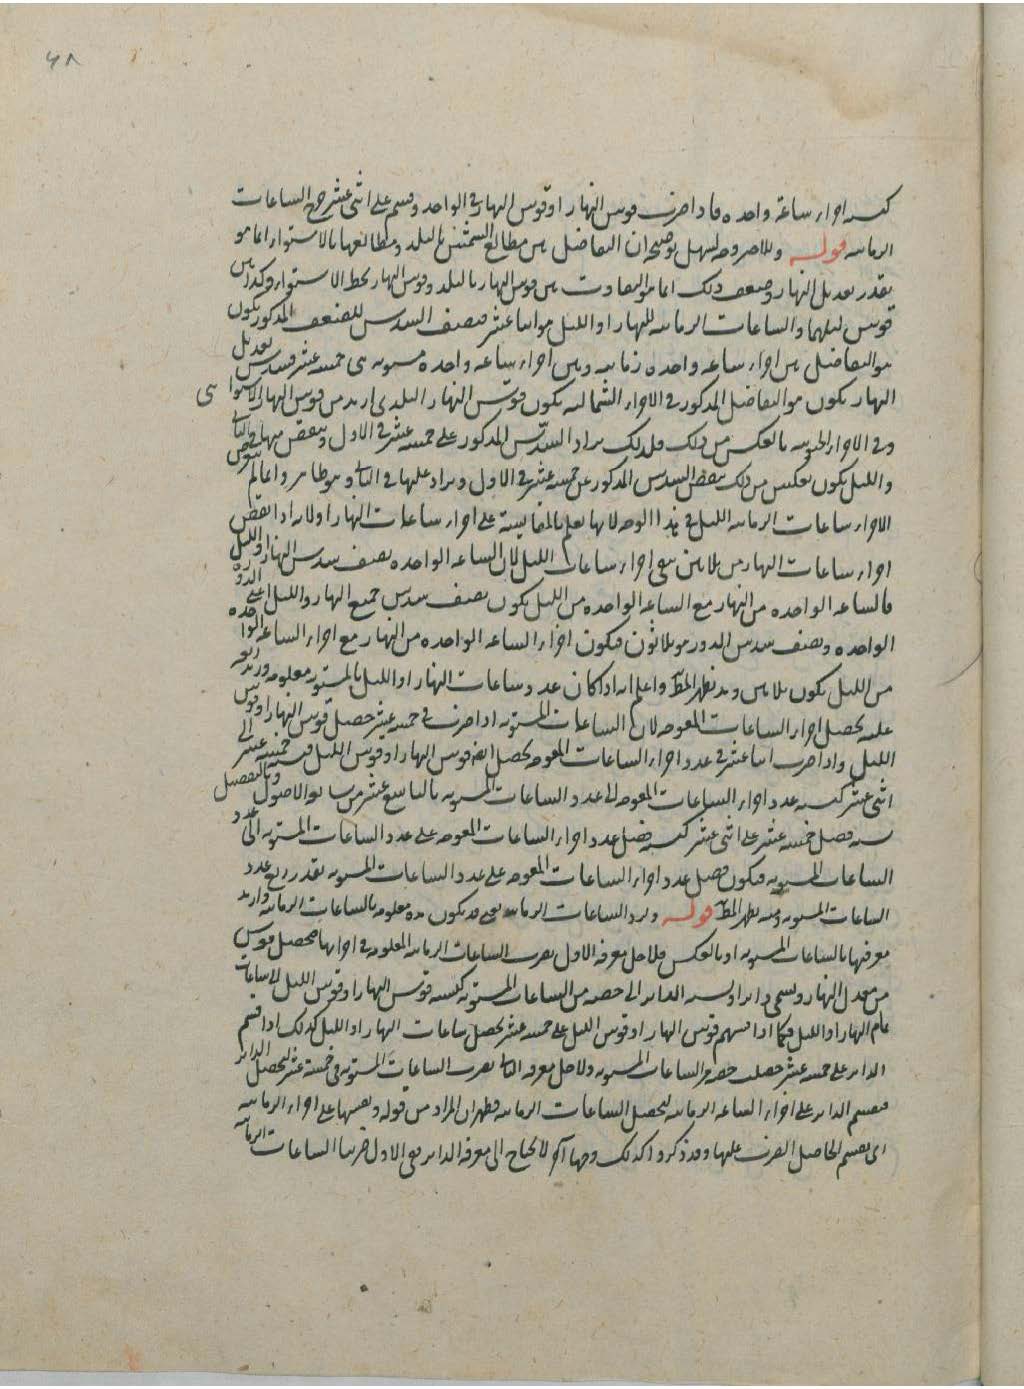 ٤٨
كنسبة اجزاء ساعة واحدة فاذا ضرب قوس النهار او قوس النهار فى الواحد وقسم على اثنى عشر خرج الساعات
الزمانية قوله وللآخر وجه سهل توضيحه ان التفاضل بين مطالع الشمس بالبلد ومطالعها بالاستواء انما هو
بقدر تعديل النهار وضعف ذلك انما هو التفاوت بين قوس النهار بالبلد وقوس النهار بخط الاستواء وكذا بين
قوس ليلهما والساعات الزمانية للنهار او الليل هو اثنا عشر فنصف السدس للضعف المذكور يكون
هو التفاضل بين اجزاء ساعة واحدة زمانية وبين اجزاء ساعة واحدة مستوية هى خمسة عشر فسدس تعديل
النهار يكون هو التفاضل المذكور فى الاجزاء الشمالية يكون قوس النهار البلدى ازيد من قوس النهار الاستوا ئى
وفى الاجزاء الجنوبية بالعكس من ذلك فلذلك يزاد السدس المذكور على خمسة عشر فى الاول وينقص منها فى الثانى
والليل يكون بعكس من ذلك ينقص السدس المذكور عن خمسة عشر فى الاول ويزاد عليها فى الثانى وهو ظاهر وانما لم
الاجزاء ساعات الزمانية الليل فى هذا الوجه لانها يعلم بالمقايسة على اجزاء ساعات النهار او لانه اذا نقص
اجزاء ساعات النهار من ثلاثين بقى اجزاء ساعات الليل لان الساعة الواحدة نصف سدس النهار او الليل
فالساعة الواحدة من النهار مع الساعة الواحدة من الليل يكون نصف سدس جميع النهار والليل اعنى الدورة
الواحدة ونصف سدس الدور هو ثلاثون فيكون اجزاء الساعة الواحدة من النهار مع اجزاء الساعة الواحدة
من الليل يكون ثلاثين وبه يظهر المط واعلم انه اذا كان عدد ساعات النهار او الليل بالمستوية معلوم وزيد ربعه
عليه يحصل اجزاء الساعات المعوجة لان الساعات المستوية اذا ضربت فى خمسة عشر حصل قوس النهار او قوس
الليل واذا ضرب اثنا عشر فى عدد اجزاء الساعات المعوجة يحصل ايضا قوس النهار او قوس الليل فنسبة خمسة عشر الى
اثنى عشر كنسبة عدد اجزاء الساعات المعوجة الى عدد الساعات المستوية بالتاسع عشر من سابعة الاصول وبالتفصيل
نسبة فضل خمسة عشر على اثنى عشر كنسبة فضل عدد اجزاء الساعات المعوجة على عدد الساعات المستوية الى عدد
الساعات المستوية فيكون فضل عدد اجزاء الساعات المعوجة على عدد الساعات المستوية بقدر ربع عدد
الساعات المستوية ومنه يظهر المط قوله ولرد الساعات الزمانية يعنى قد يكون مدة معلومة بالساعات الزمانية واريد
معرفتها بالساعات المستوية او بالعكس فلاجل معرفة الاول يضرب الساعات الزمانية المعلومة فى اجزائها فيحصل قوس
من معدل النهار ويسمى دائرا ونسبة الدائر الى حصته من الساعات المستوية كنسبة قوس النهار او قوس الليل الى ساعات
تمام النهار او الليل فكما اذا قسم قوس النهار او قوس الليل على خمسة عشر يحصل ساعات النهار او الليل كذلك اذا قسم
الدائر على خمسة عشر حصلت حصته من الساعات المستوية ولاجل معرفة الثانى يضرب الساعات المستوية فى خمسة عشر ليحصل الدائر
فيقسم الدائر على اجزاء الساعة الزمانية ليحصل الساعات الزمانية فظهر ان المراد من قوله ويقسمها على اجزاء الزمانية
اى يقسم الحاصل الضرب عليها وقد ذكروا كذلك وجها آخر لا يحتاج الى معرفة الدائر ففى الاول ضربنا الساعات الزمانية